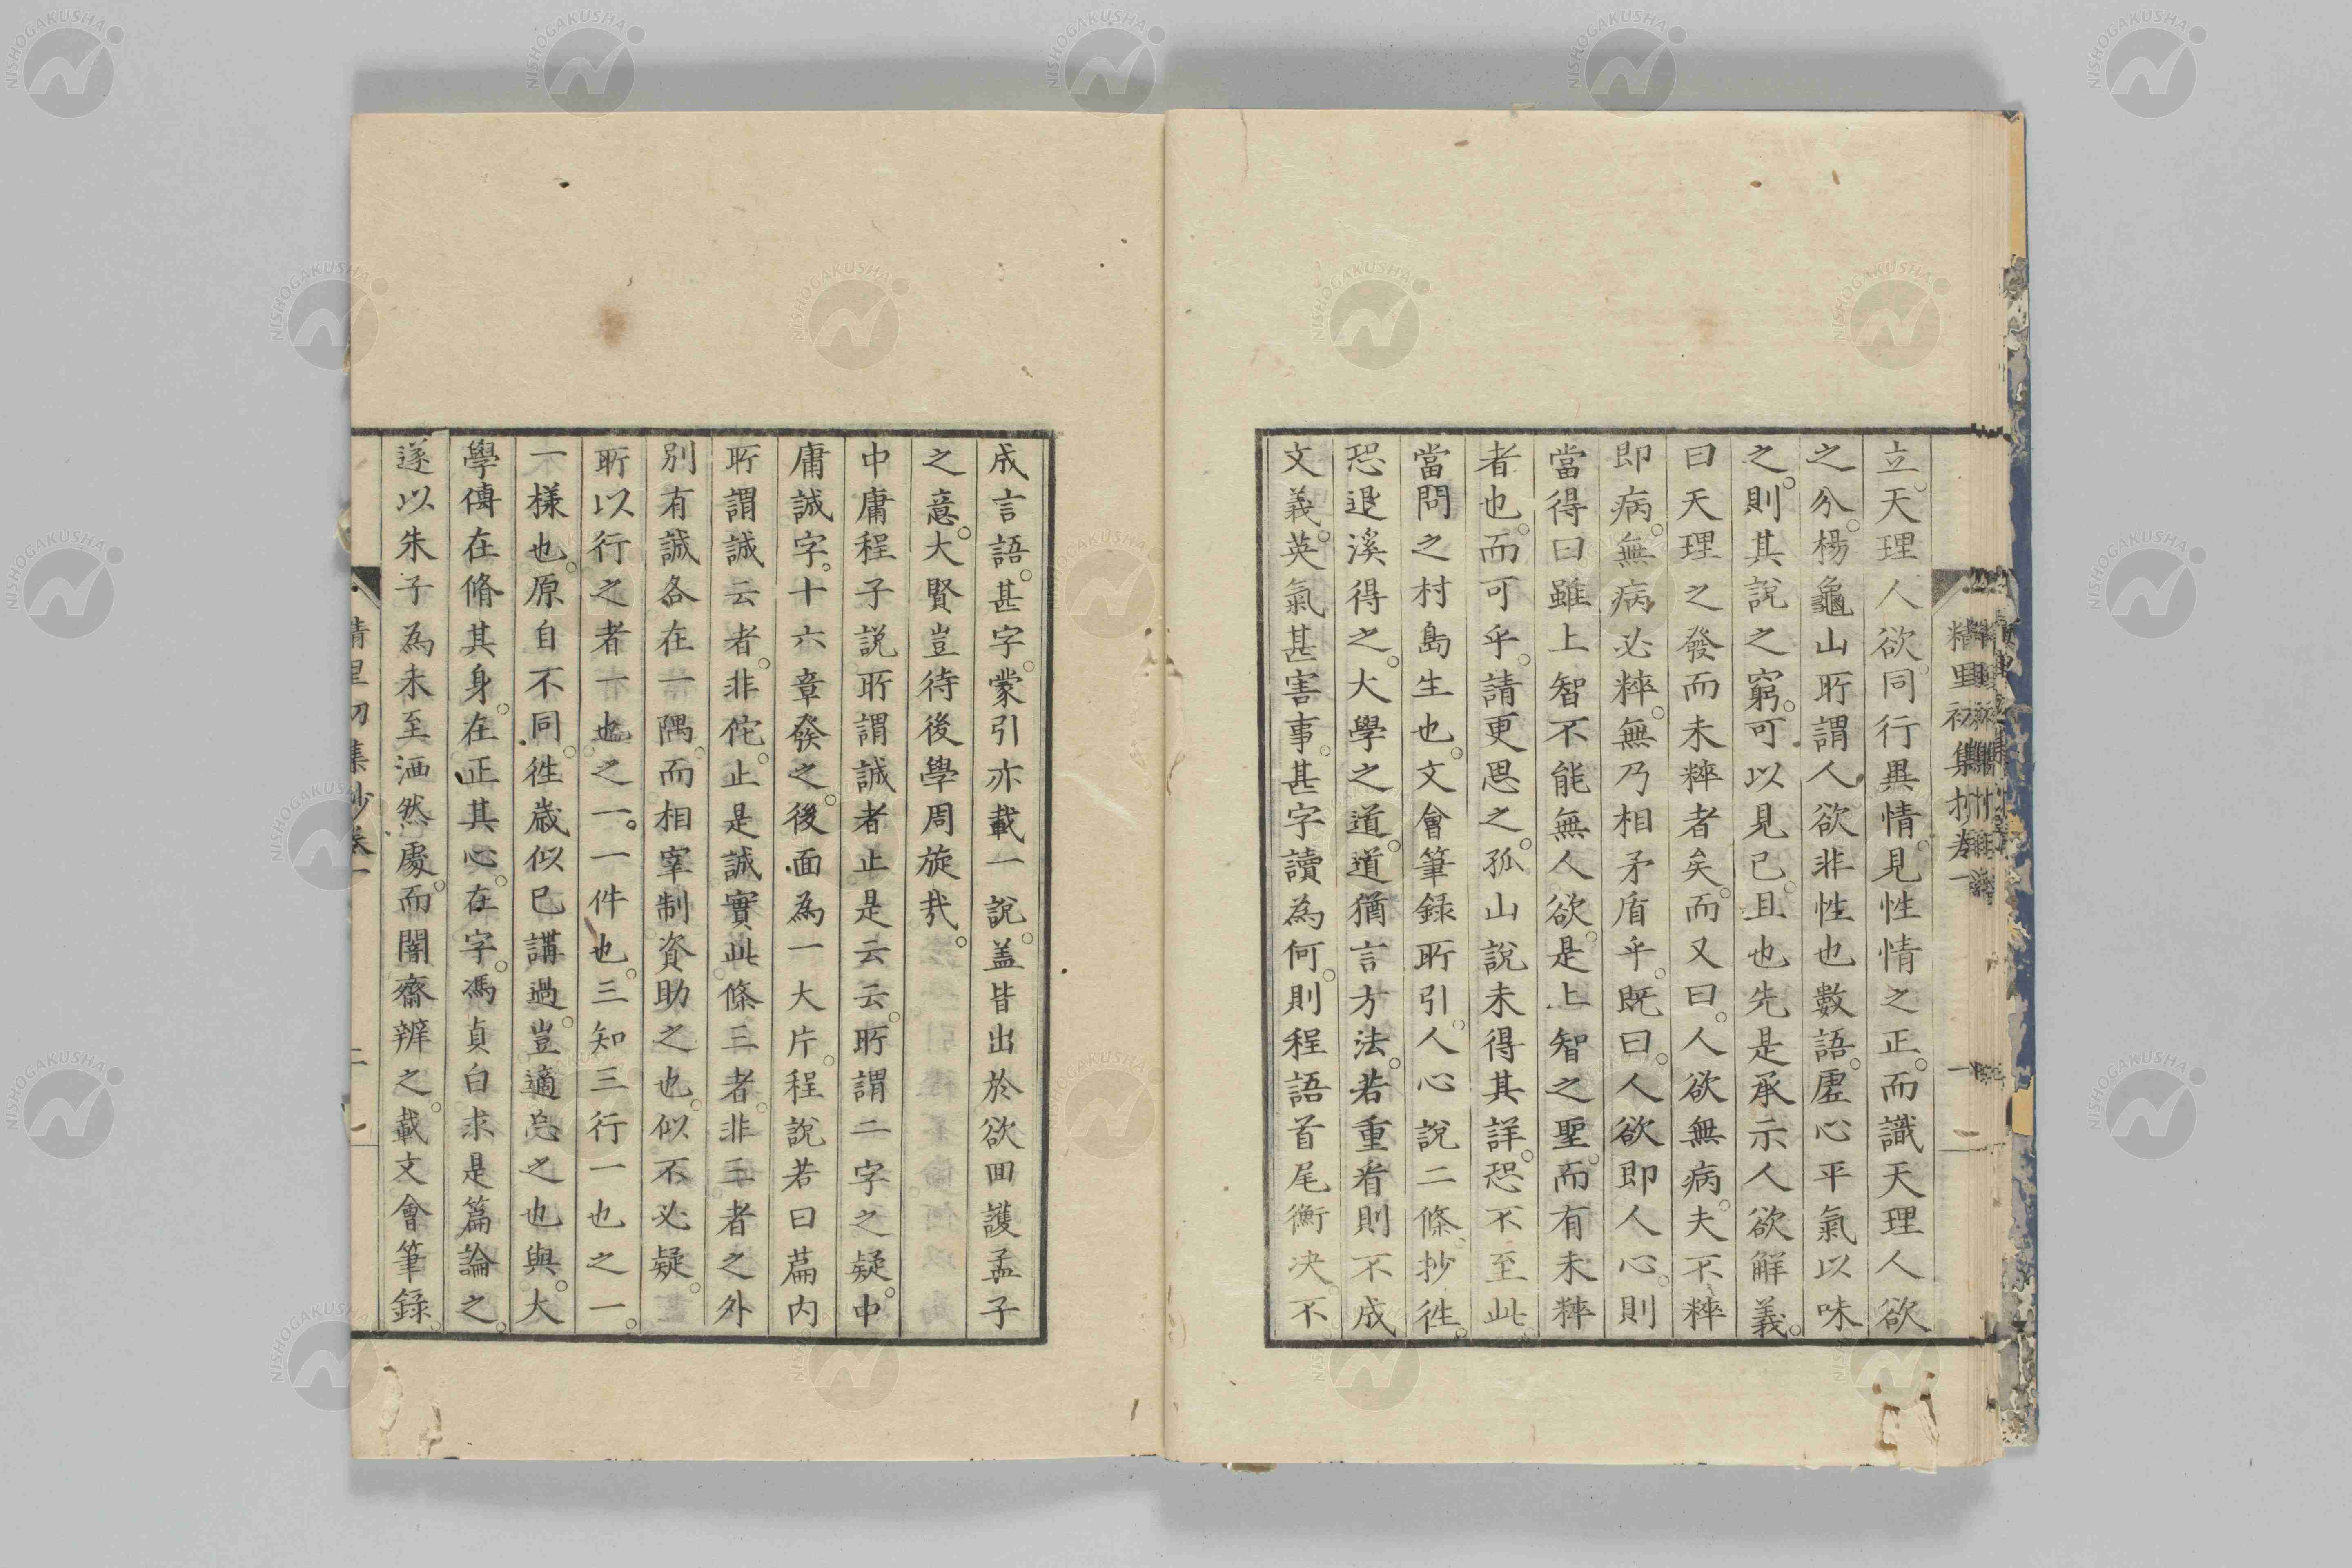 立天理人欲同行異情見性情之正而識天理人欲
之分楊龜山所謂人欲非性也數語虛心平氣以味
之則其說之窮可以見已且也先是承示人欲解義
曰天理之發而未粹者矣而又曰人欲無病夫不粹
即病無病必粹無乃相矛盾乎既曰人欲即人心則
當得曰雖上智不能無人欲是上智之聖而有未粹
者也而可乎請更思之孤山說未得其詳恐不至此
當問之村島生也文會筆録所引人心說二條抄徃
恐退溪得之大學之道道猶言方法若重看則不成
文義英氣甚害事甚字讀為何則程語首尾衡决不
成言語甚字蒙引亦載一說盖皆出於欲回護孟子
之意大賢豈待後學周旋哉
中庸程子說所謂誠者止是云云所謂二字之疑中
庸誠字十六章發之後面為一大片程說若曰篇内
所謂誠云者非佗止是誠實此條三者非三者之外
別有誠各在一隅而相宰制資助之也似不必疑
所以行之者一也之一一件也三知三行一也之一
一樣也原自不同徃歳似已講過豈適忘之也與大
學傳在脩其身在正其心在字馮貞白求是篇論之
遂以朱子為未至洒然處而闇齋辨之載文會筆錄